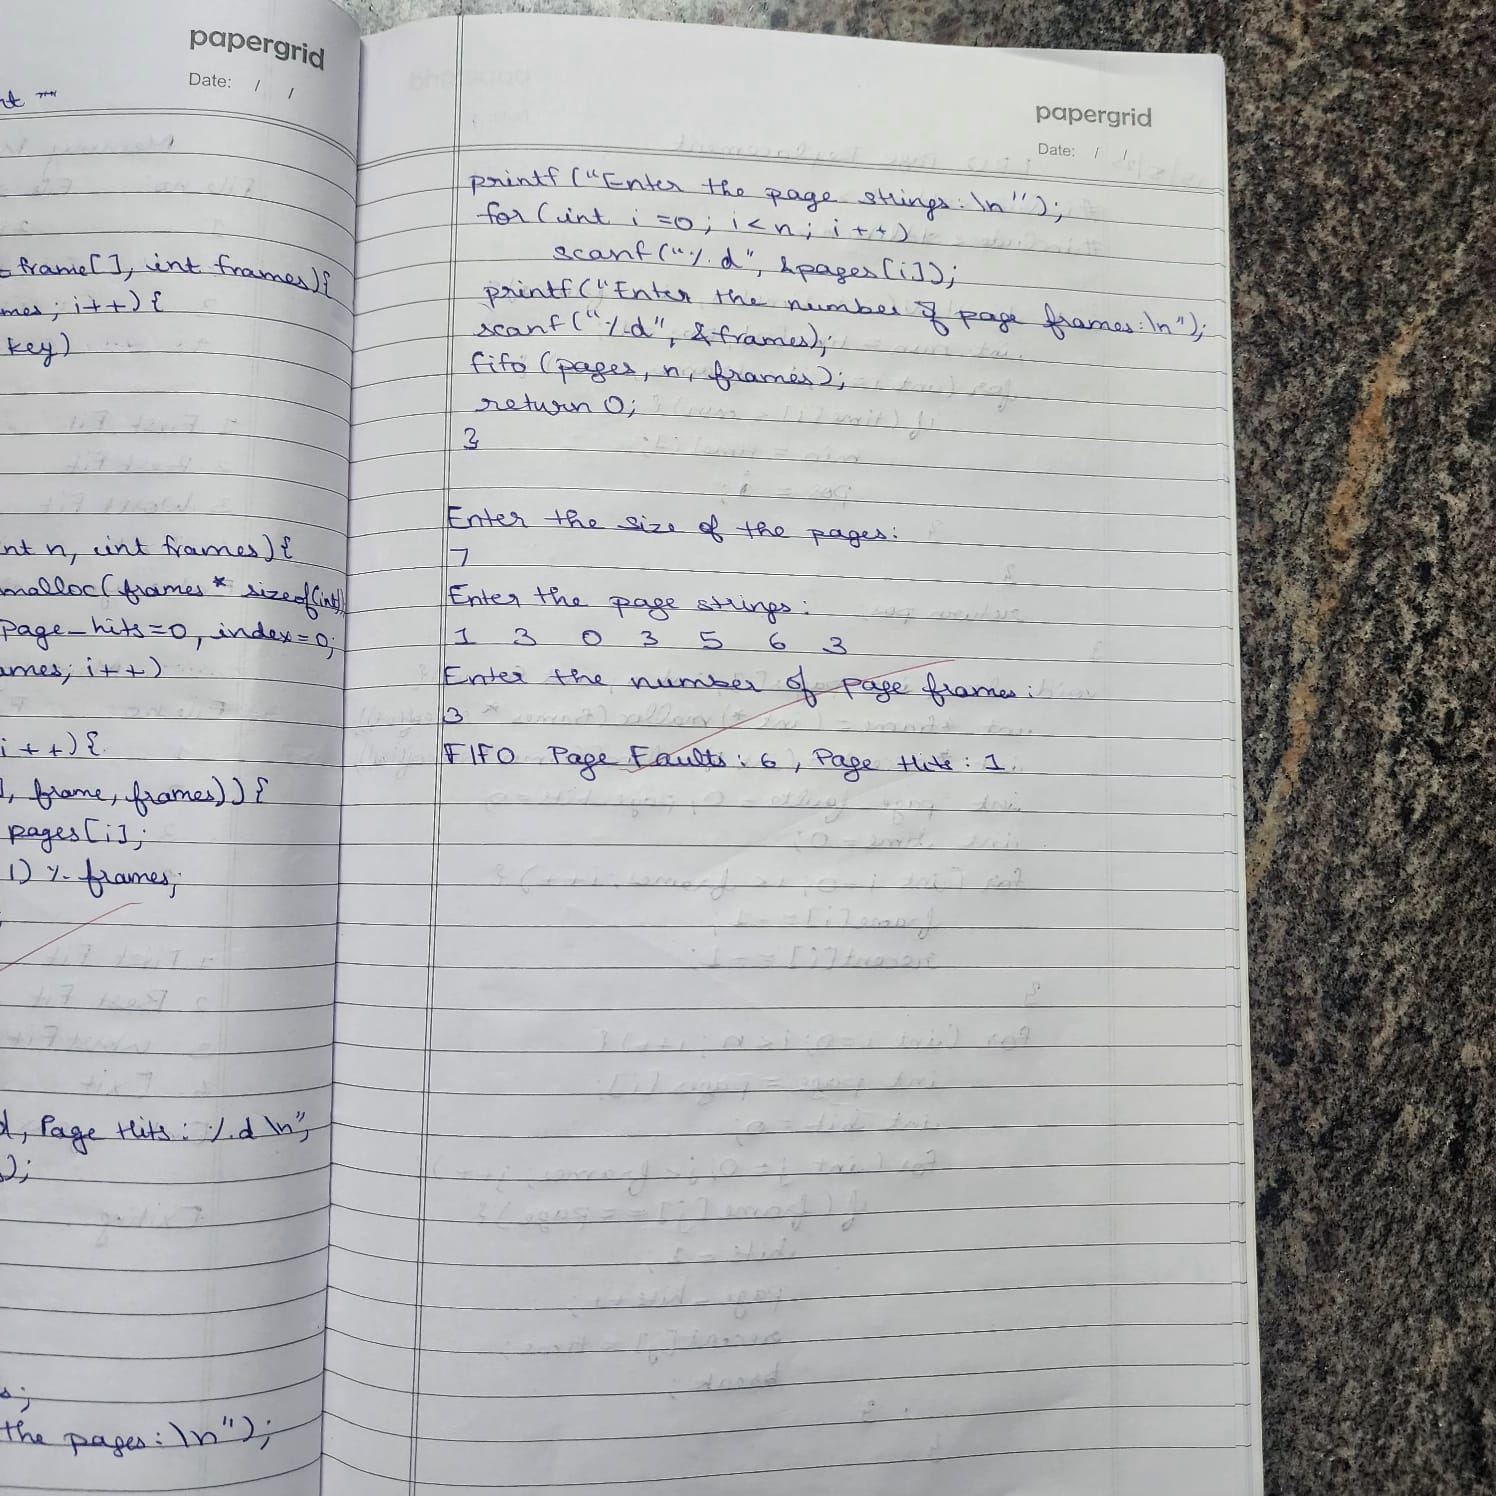 papergrid
Date: / /
frame[], int frames){
mes; i++) {
key)
nt n, int frames) {
malloc(frames * sizeof(int))
Page_hits=0, index=0;
ames; i++)
i++){
], frame, frames)) {
pages[i];
1) % frames;
d, Page Hits: %d \n",
);
s;
the pages: \n");
papergrid
Date: / /
printf("Enter the page strings: \n");
for (int i=0; i<n; i++)
scanf("%d", &pages[i]);
printf("Enter the number of page frames: \n");
scanf("%d", &frames);
fifo (pages, n, frames);
return 0;
}
Enter the size of the pages:
7
Enter the page strings:
1 3 0 3 5 6 3
Enter the number of page frames:
3
FIFO Page Faults: 6, Page Hits: 1